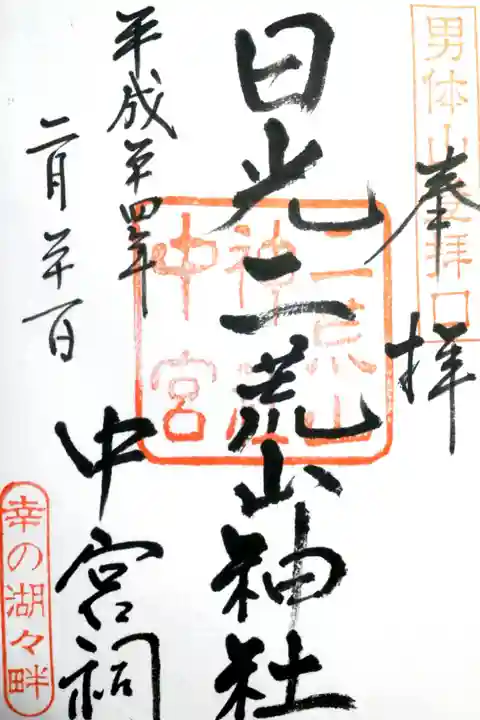 男体山登拝口
奉拝
日光二荒山神社
二荒山
神社
中宮
中宮祠
平成廿四年
二月廿一日
幸の湖々畔